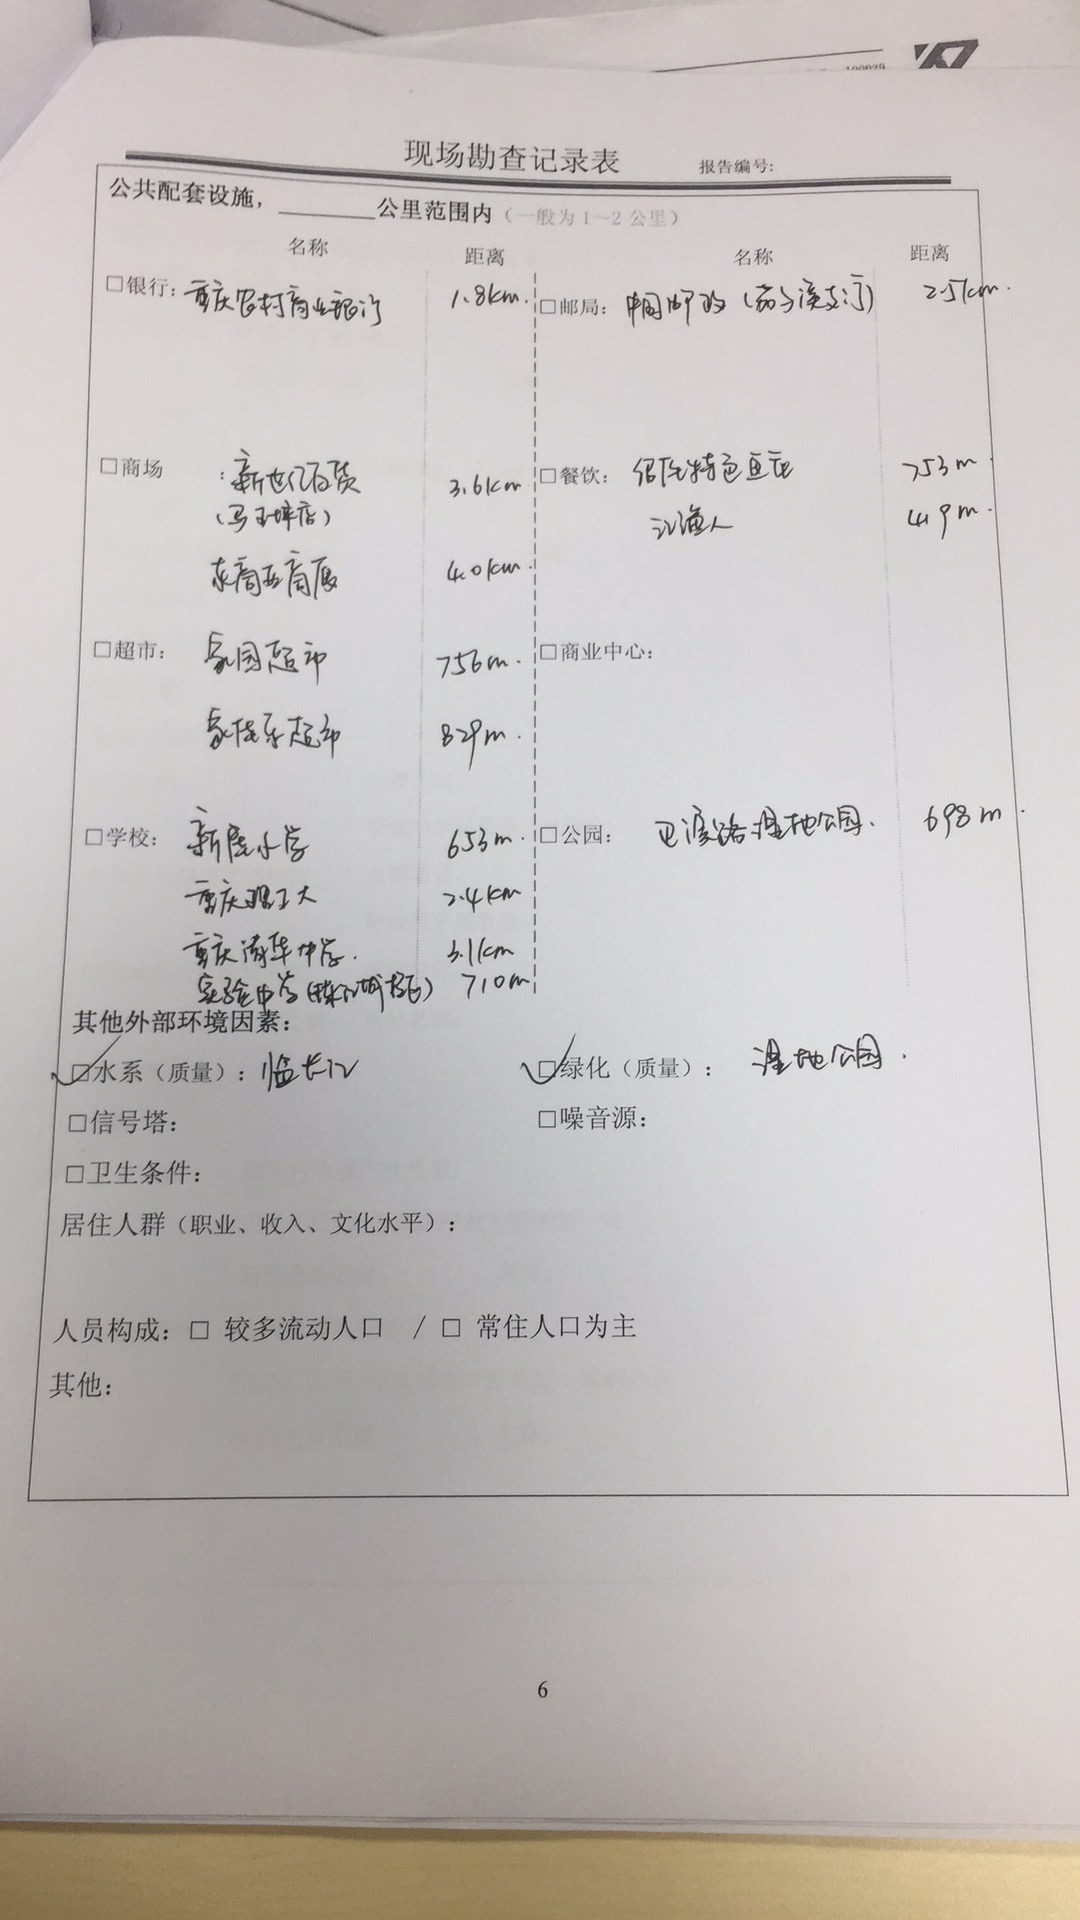 100039
现场勘查记录表 报告编号:
公共配套设施，________公里范围内（一般为1～2公里）
名称 距离 名称 距离
□银行: 重庆农村商业银行 1.8km. □邮局: 中国邮政（茄子溪支行） 2.5km.
□商场 :新世纪百货 3.6km □餐饮: 特色豆花 753m
（马王坪店） 江渔人 419m.
4.0km.
□超市: 家园超市 756m. □商业中心:
家佳乐超市 829m.
□学校: 小学 653m. □公园: 湿地公园. 698m.
重庆理工大 2.4km
重庆清华中学. 3.1km
实验中学 710m
其他外部环境因素:
□水系（质量）: 临长江 □绿化（质量）: 湿地公园.
□信号塔: □噪音源:
□卫生条件:
居住人群（职业、收入、文化水平）:
人员构成: □ 较多流动人口 / □ 常住人口为主
其他:
6